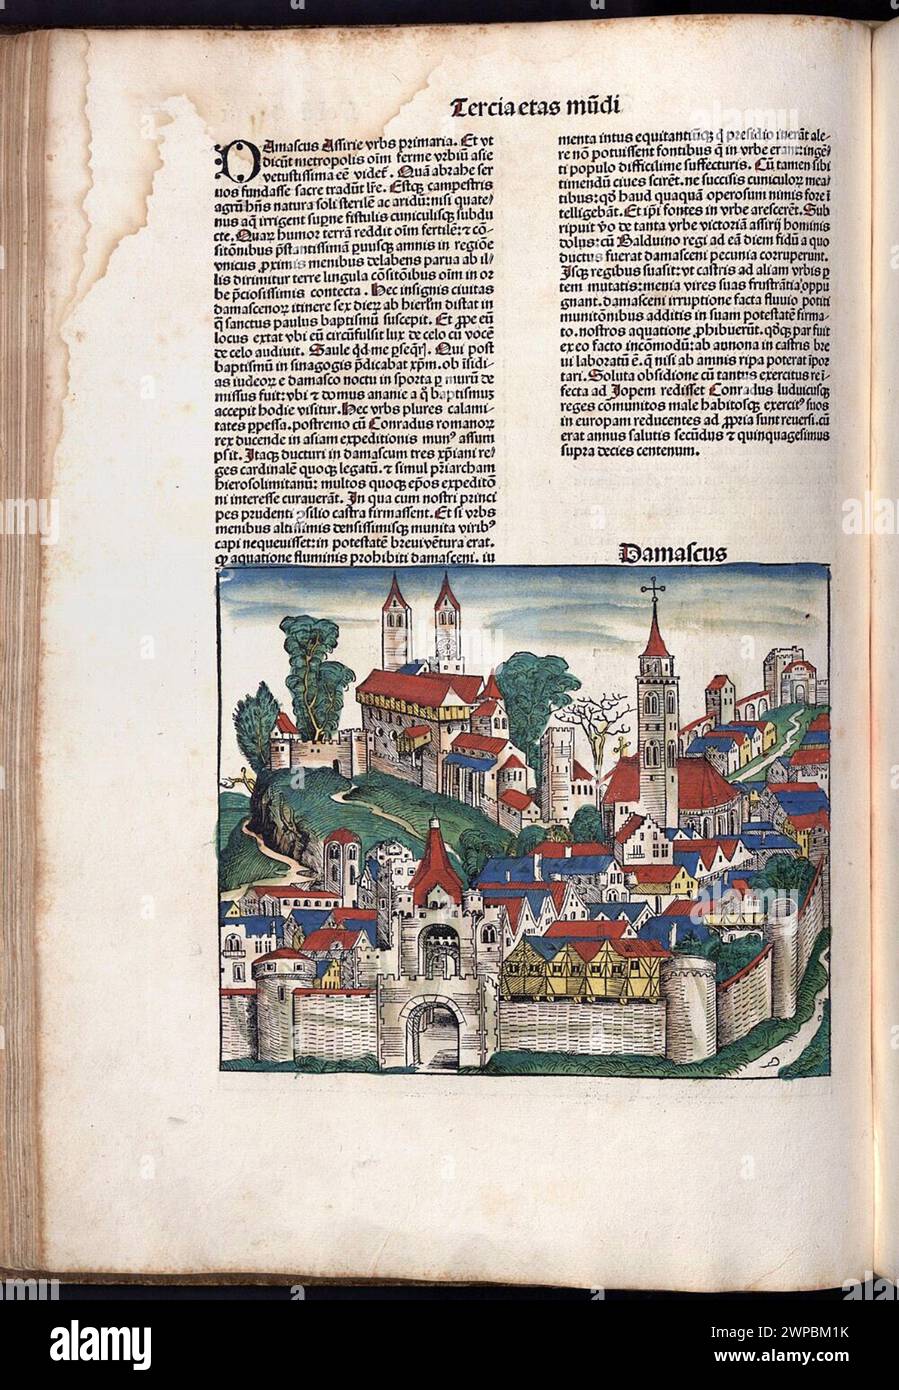 Tercia etas mūdi
DAmascus Assirie vrbs primaria. Et vt
dicūt metropolis oīm ferme vrbiū asie
vetustissima eē videt᷑. Quā abrahe ser
uos fundasse sacre tradūt lr̄e. Estq; campestris
agrū hn̄s natura soli sterilē ac aridū: nisi quate⸗
nus aq̄ irrigent supne fistulis cuniculisq; subdu
cte. Quar humor terrā reddit oīm fertilē: ⁊ cō⸗
sitōnibus p̄stantissimā puusq; amnis in regiōe
vnicus ꝓximis menibus delabens parua ab il⸗
lis dirimitur terre lingula cōsitōnibus oīm in or
be p̄ciosissimis contecta. Hec insignis ciuitas
damascenoꝝ itinere sex dieꝝ ab hierl̄m distat in
q̄ sanctus paulus baptismū suscepit. Et ꝓpe eū
locus extat vbi eū circūfulsit lux de celo cū vocē
de celo audiuit. Saule qd me pseq̄rꝭ. Qui post
baptismū in sinagogis p̄dicabat xp̄m. ob īsidi⸗
as iudeoꝝ e damasco noctu in sporta ꝑ murū de
missus fuit: vbi ⁊ domus ananie a q̄ baptismuꝫ
accepit hodie visitur. Hec vrbs plures calami⸗
tates ꝑpessa. postremo cū Conradus romanoꝝ
rex ducende in asiam expeditionis munꝰ assum
psit. Itaq; ducturi in damascum tres xp̄iani re⸗
ges cardinalē quoq; legatū. ⁊ simul pr̄iarcham
hierosolimitanū: multos quoq; ep̄os expeditō⸗
ni interesse curauerāt. In qua cum nostri princi
pes prudenti ꝯsilio castra firmassent. Et si vrbs
menibus altissimis densissimisq; munita viribꝰ
capi nequeuisset: in potestatē breui vētura erat.
qꝫ aquatione fluminis prohibiti damasceni. iu
menta intus equitantiūq; q̄ presidio inerāt ale⸗
re nō potuissent fontibus q̄ in vrbe erant: ingē⸗
ti populo difficilime suffecturis. Cū tamen sibi
timendū ciues scirēt. ne succisis cuniculoꝝ mea⸗
tibus: qd̄ haud quaquā operosum nimis fore ī
telligebāt. Et ip̄i fontes in vrbe arescerēt. Sub
ripuit v̄o de tanta vrbe victoriā assirij hominis
dolus: cū Balduino regi ad eā diem fidū a quo
ductus fuerat damasceni pecunia corruperunt.
Isq; regibus suasit: vt castris ad aliam vrbis ꝑ
tem mutatis: menia vires suas frustrātia oppu
gnant. damasceni irruptione facta fluuio potiti
munitōnibus additis in suam potestatē firma⸗
to. nostros aquatione ꝓhibuerūt. qd̄q; par fuit
ex eo facto incōmodū: ab annona in castris bre
ui laboratū ē. q̄ nisi ab amnis ripa poterat īpor
tari. Soluta obsidione cū tantus exercitus reī⸗
fecta ad Jopem redisset Conradus luduicusq;
reges comunitos male habitosq; exercitꝰ suos
in europam reducentes ad ꝓpria sunt reuersi. cū
erat annus salutis secūdus ⁊ quinquagesimus
supra decies centenum.
Damascus
alamy
Image ID: 2WPBM1K
www.alamy.com